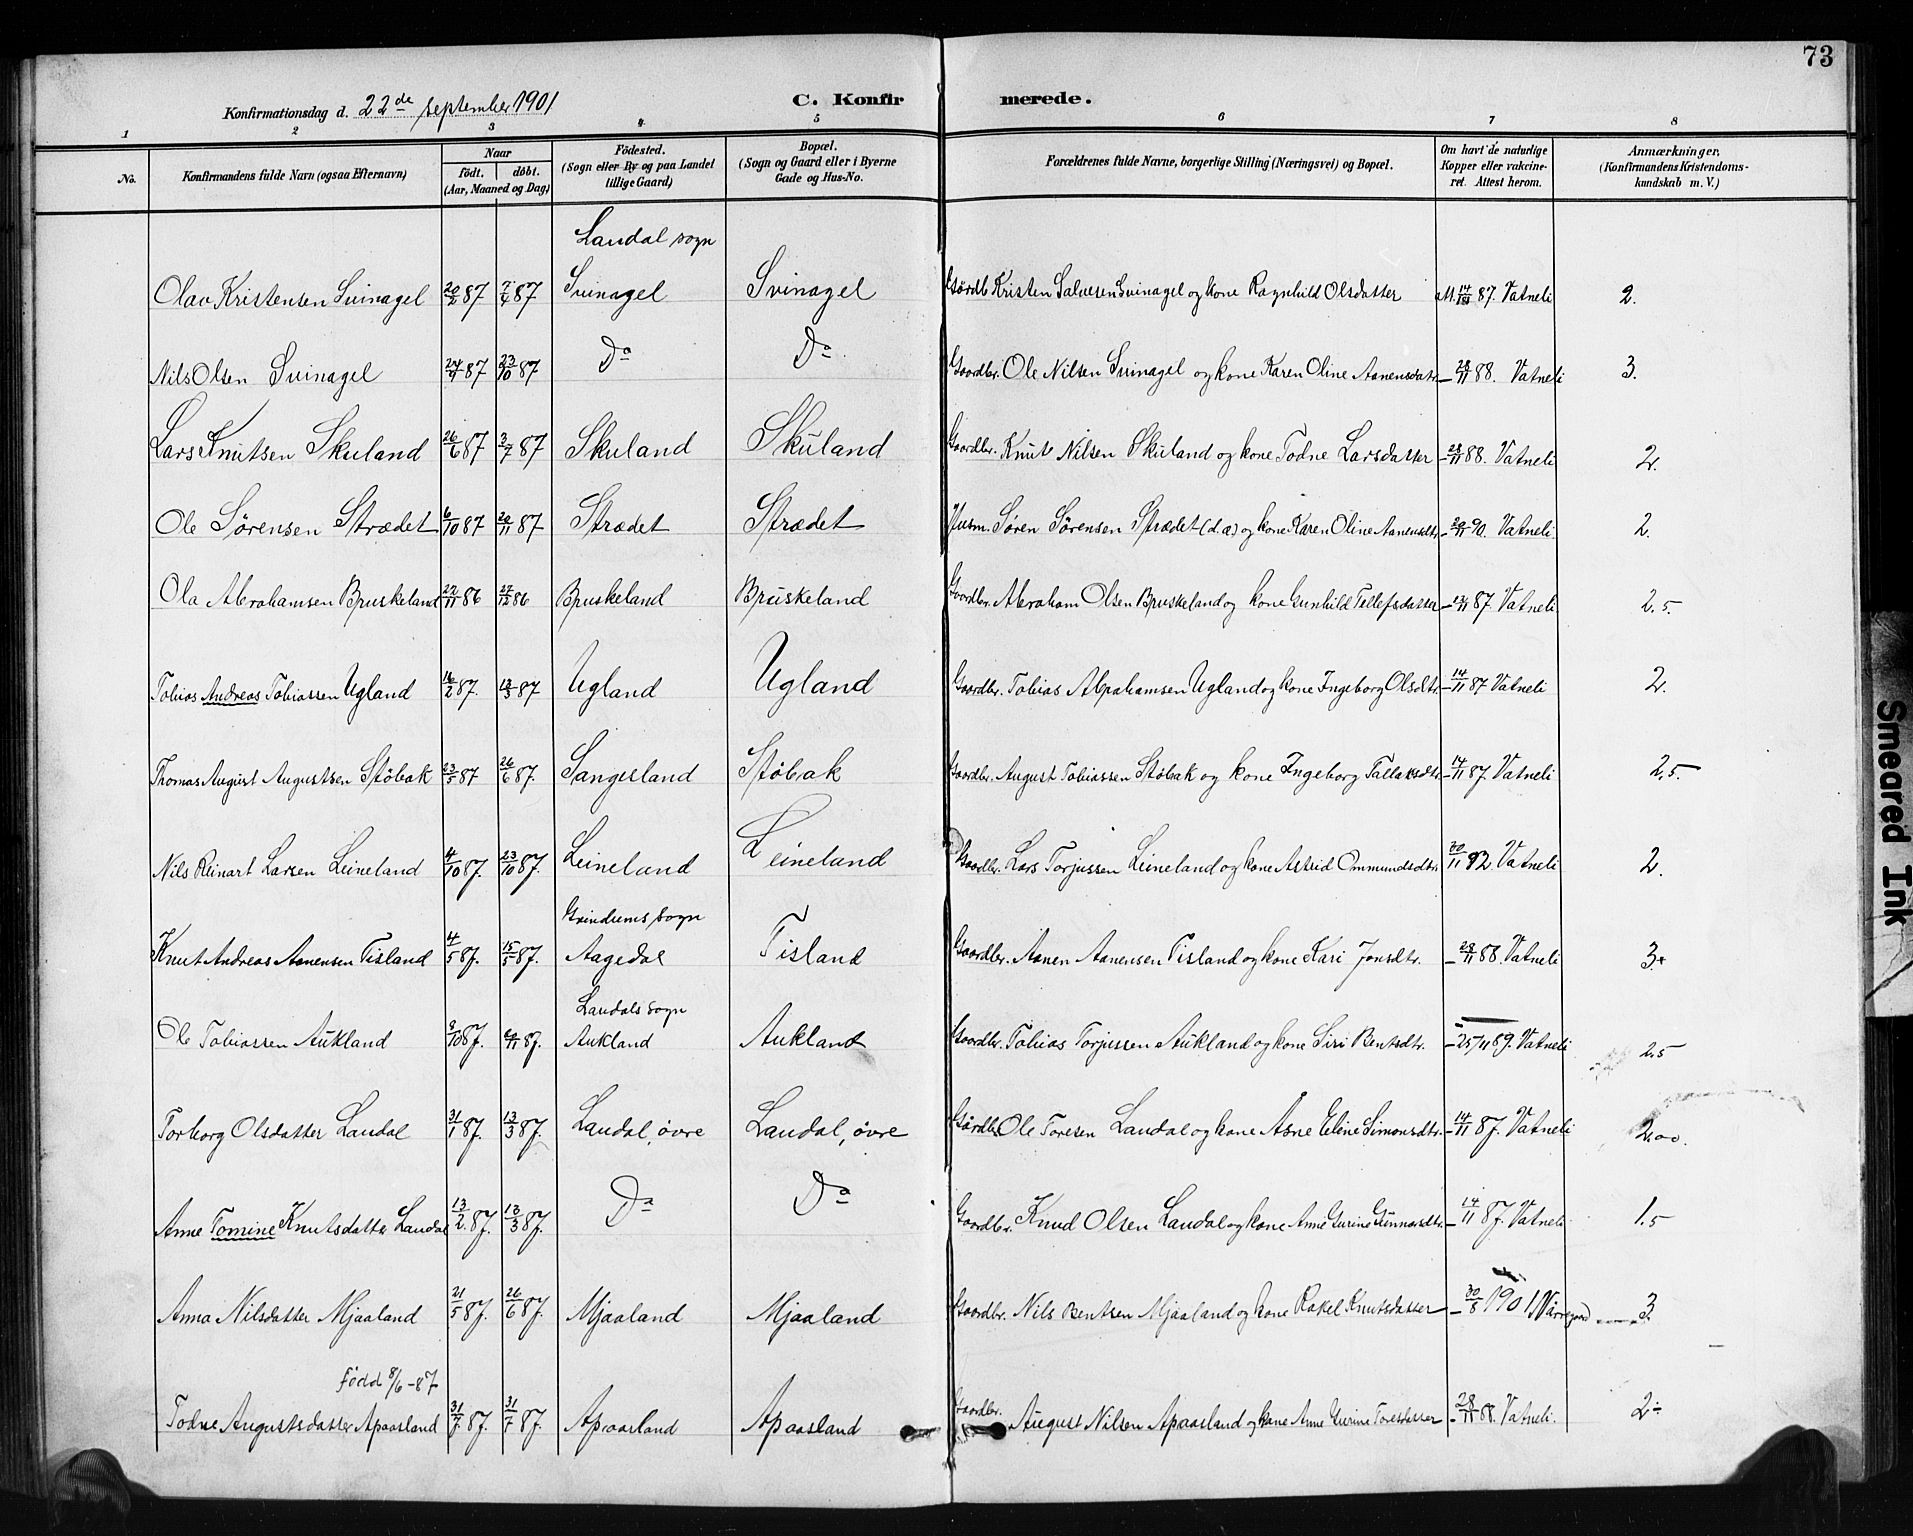 73
Konfirmationsdag d. 22de september 1901 C. Konfir merede.
1 2 3 4 5 6 7 8
No. Konfirmandens fulde Navn (ogsaa Efternavn) Naar født. døbt. (Aar, Maaned og Dag) Fødested. (Sogn eller By og paa Landet tillige Gaard) Bopæl. (Sogn og Gaard eller i Byerne Gade og Hus-No. Forældrenes fulde Navne, borgerlige Stilling (Næringsvei) og Bopæl. Om havt de naturlige Kopper eller vakcineret. Attest herom. Anmærkninger. (Konfirmandens Kristendomskundskab m. V.)
Laudal sogn
Olav Kristensen Svinagel 20/2 87 7/4 87 Svinagel Svinagel Gårdb Kristen Salvesen Svinagel og kone Ragnhild Olsdatter att. 14/11 87. Vatneli 2.
Nils Olsen Svinagel 87 23/10 87 Do Do Gaardbr. Ole Nilsen Svinagel og kone Karen Oline Aanensdatr. – 28/11 88. Vatneli 3.
Lars Knutsen Skuland 26/6 87 3/7 87 Skuland Skuland Gaardbr. Knut Nilsen Skuland og kone Todne Larsdatter – 28/11 88. Vatneli 2.
Ole Sørensen Strædet 6/10 87 20/11 87 Strædet Strædet Husm. Søren Sørensen Strædet (d.æ) og kone Karen Oline Aanensdtr. – 20/11 90. Vatneli. 2.
Ola Abrahamsen Bruskeland 22/11 86 27/12 86 Bruskeland Bruskeland Gaardbr. Abraham Olsen Bruskeland og kone Gunhild Tellefsdatter – 12/11 87. Vatneli 2.5.
Tobias Andreas Tobiassen Ugland 16/2 87. 13/3 87 Ugland Ugland Gaardbr. Tobias Abrahamsen Ugland og kone Ingeborg Olsdtr. – 14/11 87 Vatneli 2.
Thomas August Augustsen Støbak 23/5 87 26/6 87. Sangesland Støbak Gaardbr. August Tobiassen Støbak og kone Ingeborg Tallaksdtr. – 14/11 87. Vatneli 2.5.
Nils Reinart Larsen Leineland 4/10 87. 23/10 87. Leineland Leineland Gaardbr. Lars Torjussen Leineland og kone Astrid Ommundsdtr. 30/11 92. Vatneli 2.
Grindems sogn
Knut Andreas Aanensen Tisland 4/5 87. 15/5 87. Aagedal Tisland Gaardbr. Aanen Aanensen Tisland og kone Kari Jonsdtr. – 28/11 88. Vatneli 3.+
Laudals sogn
Ole Tobiassen Aukland 9/10 87. 6/11 87. Aukland Aukland Gaardbr. Tobias Torjussen Aukland og kone Siri Bentsdtr. – 25/11 89. Vatneli 2.5
Torborg Olsdatter Laudal 31/1 87. 13/3 87. Laudal, øvre Laudal, øvre Gårdbr. Ole Toresen Laudal og kone Åsne Eline Simonsdtr. – 14/11 87. Vatneli 2.00.
Anne Tomine Knutsdatter Laudal 13/2 87. 13/3 87. Do Do Gaardbr. Knud Olsen Laudal og kone Anne Gurine Gunnarsdtr. – 14/11 87. Vatneli 1.5
Anna Nilsdatter Mjaaland 21/5 87. 26/6 87. Mjaaland Mjaaland Gaardbr. Nils Bentsen Mjaaland og kone Rakel Knutsdatter – 30/8 1901. 3
Född 8/6-87
Todne Augustsdatter Apaasland 31/7 87. 31/7 87. Apaasland Apaasland Gaardbr. August Nilsen Apaasland og kone Anne Gurine Toresdatter – 28/11 88. Vatneli. 2÷
Smeared Ink